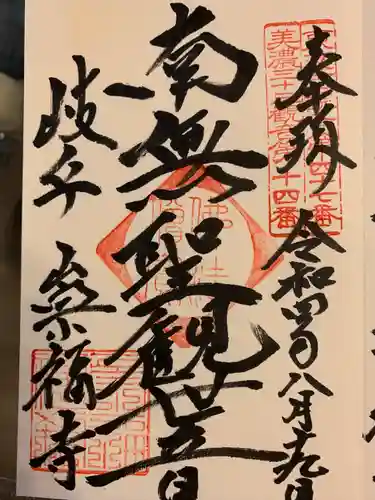 奉拝
令和四年八月十九日
美濃三十三観音第十四番
南無聖観世音
岐阜 崇福寺